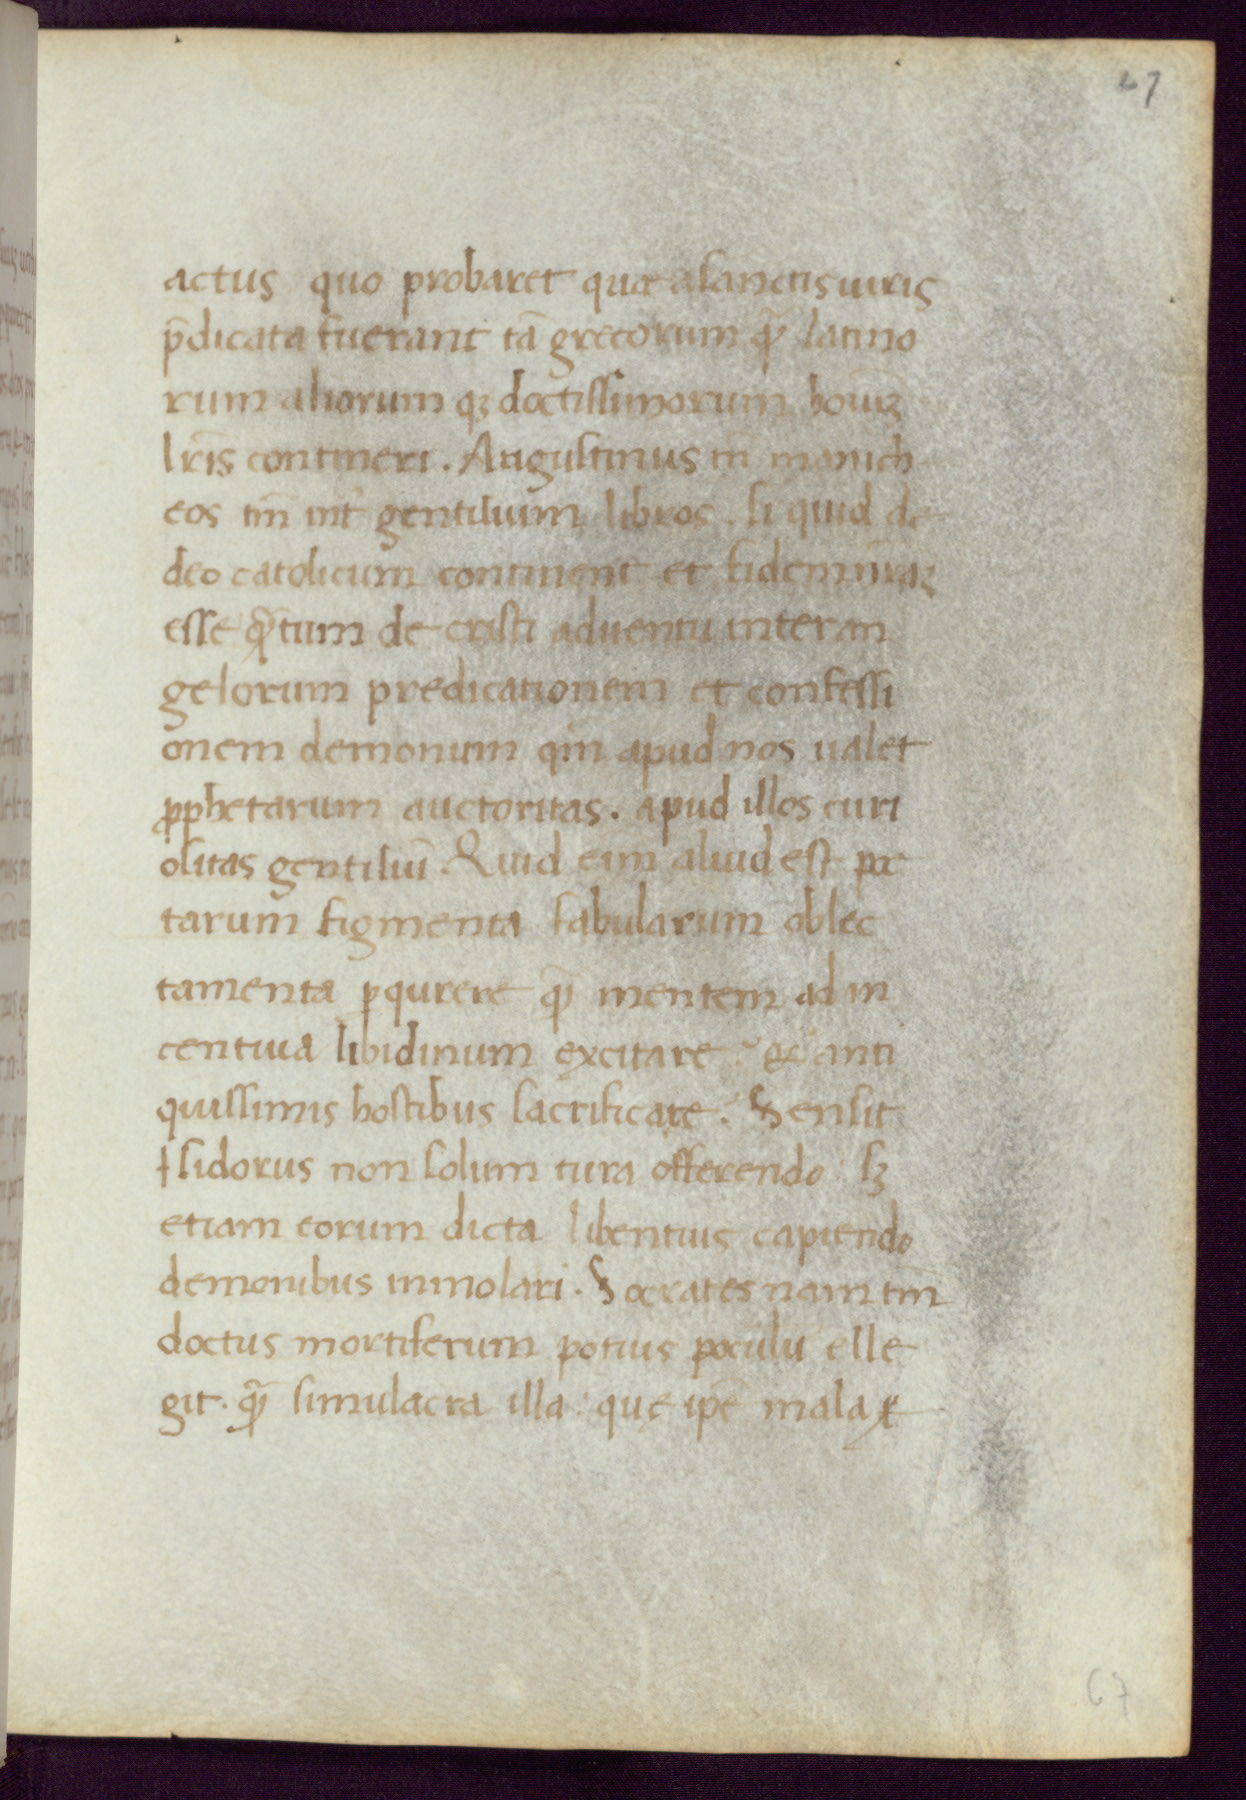 27
actus quo probaret quae a sanctis uiris
p̄dicata fuerant tā grecorum qꝫ̄ latino
rum aliorum qꝫ doctissimorum hōiūꝫ
lr̄is contineri. Augustinus in manich
eos tm̄ int̄ gentilium libros. si quid de
deo catolicum continent et fidem nr̄aꝫ
esse qꝫ̄tum de cristi aduentu inter an
gelorum predicationem et confessi
onem demonum qm̄ apud nos ualet
ꝓphetarum auctoritas. apud illos curi
ositas gentiliuī. Quid eim̄ aliud est poe
tarum figmenta fabularum oblec
tamenta ꝑqurere qꝫ̄ mentem ad in
centiua libidinum excitare? & anti
quissimis hostibus sacrificare? Sensit
Isidorus non solum tura offerendo: sꝫ
etiam eorum dicta libentius capiendo
demonibus inmolari. Socrates nam tm̄
doctus mortiferum potius poculū elle
git. qꝫ̄ simulacra illa: quę ip̄e mala &
67